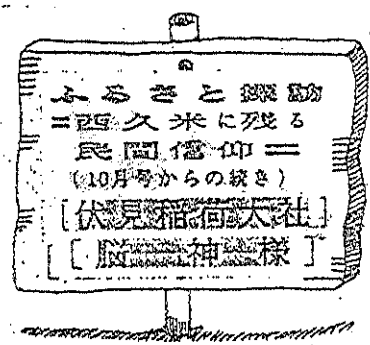 ふるさと探訪
=西久米に残る
民間信仰=
(10月号からの続き)
[伏見稲荷大社]
[脳三神三様]